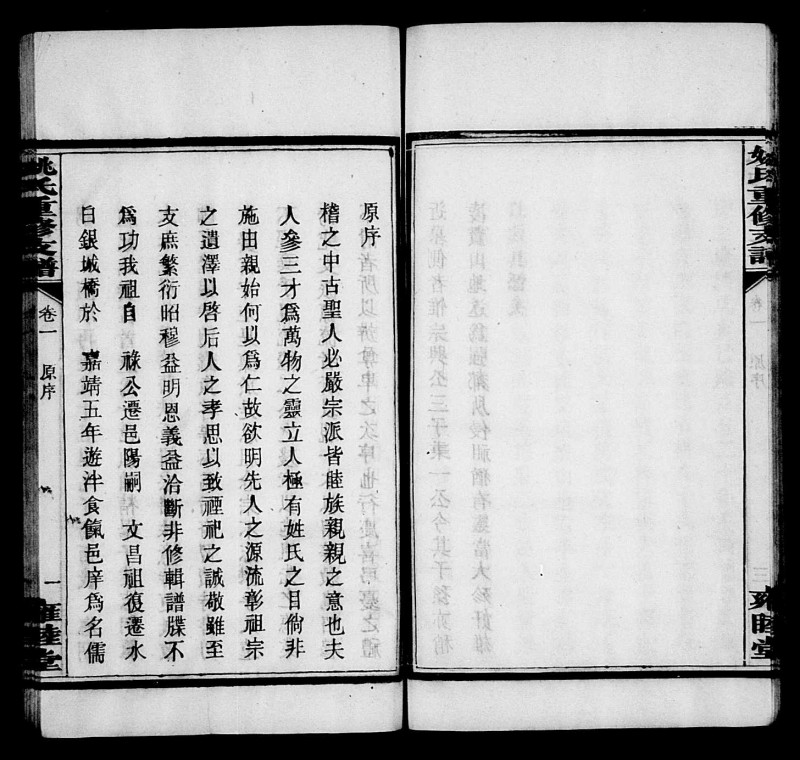 姚氏重修支譜
卷一
原序
三
雍睦堂
原序
稽之中古聖人必嚴宗派皆睦族親親之意也夫
人參三才爲萬物之靈立人極有姓氏之目倘非
施由親始何以爲仁故欲明先人之源流彰祖宗
之遺澤以啓后人之孝思以致禋祀之誠敬雖至
支庶繁衍昭穆益明恩義益洽斷非修輯譜牒不
爲功我祖自 祿公遷邑陽嗣 文昌祖復遷水
白銀城橋於 嘉靖五年遊泮食餼邑庠爲名儒
姚氏重修支譜
卷一
原序
一
雍睦堂